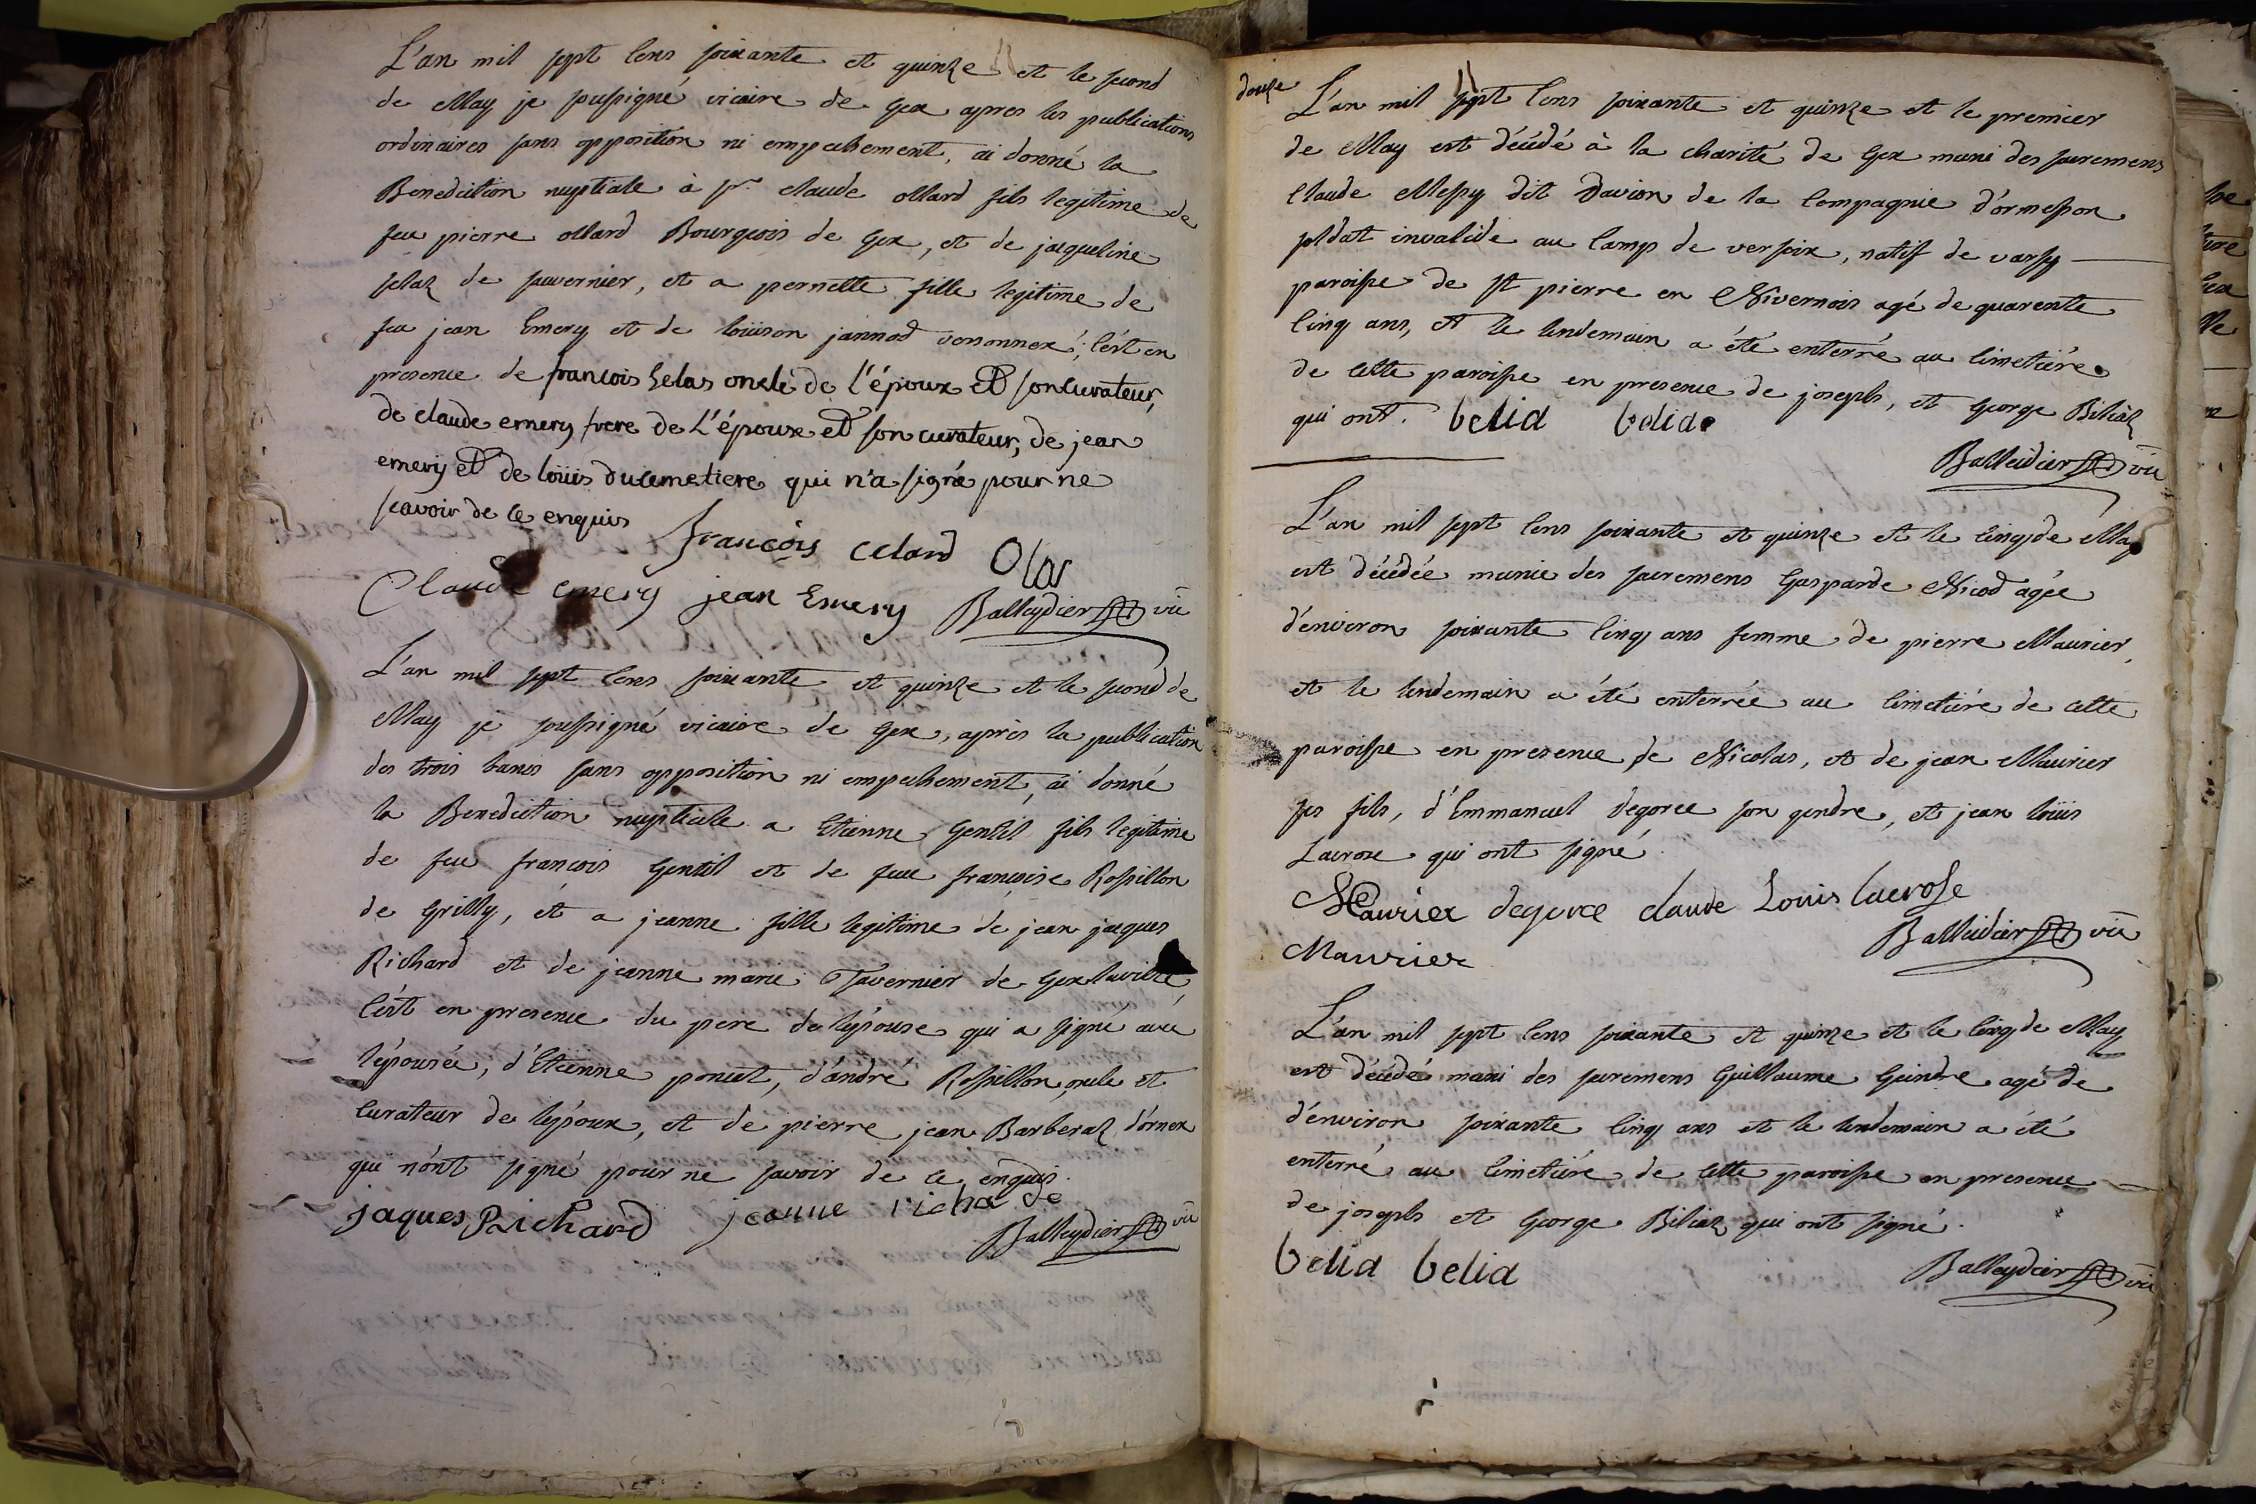 L'an mil sept cens soixante et quinze et le second
de May je soussigné vicaire de Gex apres les publications
ordinaires sans opposition ni empechement, ai donné la
Benediction nuptiale à Sr. claude ollard fils legitime de
feu pierre ollard Bourgeois de Gex, et de jaqueline
de, et a pernette fille legitime de
feu jean Emery et de loüison jannod; c'ést en
presence de francois selas oncle de l'époux et son curateur,
de claude emery frere de L'épouse et son curateur, de jean
emery et de loüis ducimetiere qui n'a signé pour ne
scavoir de ce enquis
françois celard Olar
Claude emery jean Emery Balleydier vic
L'an mil sept cens soixante et quinze et le second de
May je soussigné vicaire de Gex, après la publication
des trois bancs sans opposition ni empechement, ai donné
la Benediction nuptiale a Etienne Gentil fils legitime
de feu francois Gentil et de feue francoise Rossillon
de Grilly, ét a jeanne fille legitime de jean jaques
Richard et de jeanne marie Tavernier de Gex la ville,
c'ést en presence du pere de lépouse qui a signé avec
l'épousée, d'Etienne poncet, d'andré Rossillon oncle et
curateur de lépoux, et de pierre jean Barberaz d'ornex
qui n'ont signé pour ne savoir de ce enquis.
jaques Richard jeanne richarde
Balleydier vic
douze
L'an mil sept cens soixante et quinze et le premier
de May est décédé à la charité de Gex muni des sacremens
Claude Messy dit Davion de la compagnie d'ormesson
soldat invalide au camp de versoix, natif de varsy
paroisse de St pierre en Nivernois agé de quarente
cinq ans, et le lendemain a été enterré au cimetiére
de cette paroisse en presence de joseph, et George Biliaz
qui ont. belia belia
Balleidier vic
L'an mil sept cens soixante et quinze et le cinq de May
est décédée munie des sacremens Gasparde Nicod agée
d'énviron soixante cinq ans femme de pierre Maurier,
et le lendemain a été enterrée au cimetiére de cette
paroisse en presence de Nicolas, et de jean Maurier
ses fils, d'Emmanuel degorce son gendre, et jean loüis
Lacrose qui ont signé.
Maurier degorce claude Louis lacrose
Balleidier vic
Maurier
L'an mil sept cens soixante et quinze et le cinq de May
est décédé muni des sacremens Guillaume Geindre agé de
d'énviron soixante cinq ans et le lendemain a été
enterré au cimetiére de cette paroisse en presence
de joseph et George Biliaz qui ont signé.
belia belia
Balleydier vic